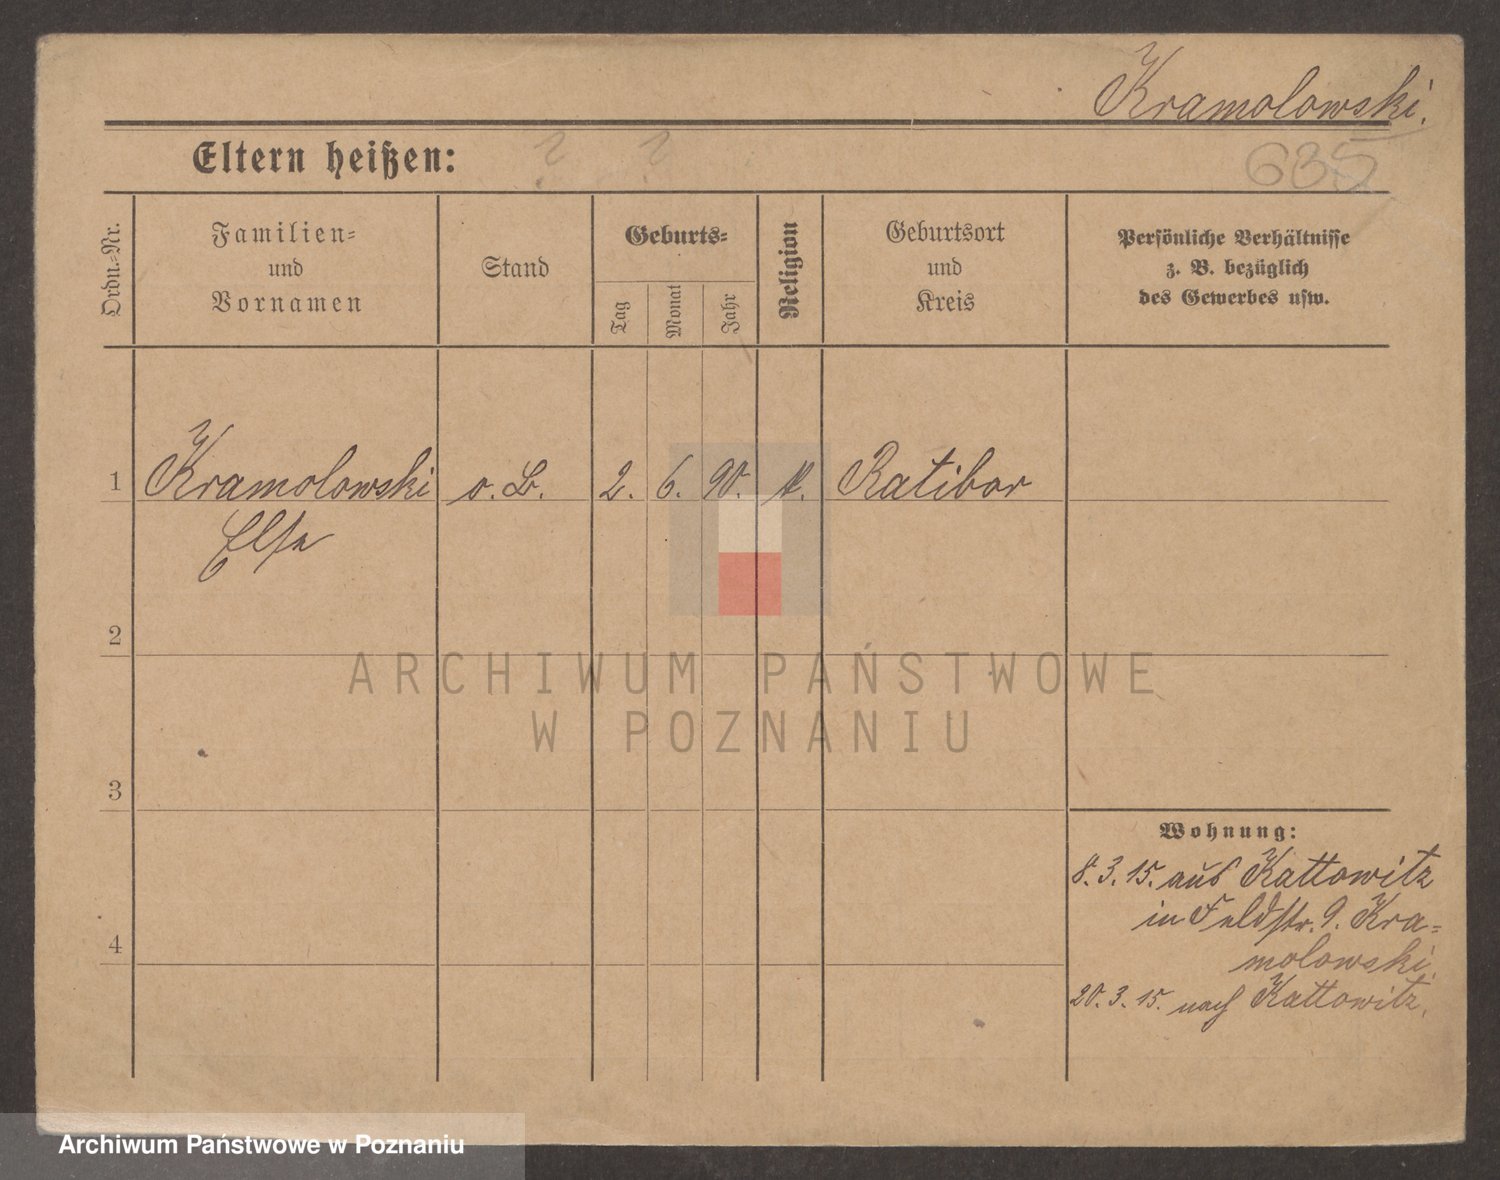 Kramolowski.
Eltern heißen: ? ?
635
Ordn.-Nr.
Familien-
und
Vornamen
Stand
Geburts-
Tag
Monat
Jahr
Religion
Geburtsort
und
Kreis
Persönliche Verhältnisse
z. B. bezüglich
des Gewerbes usw.
1 Kramolowski o. B. 2. 6. 90. k. Ratibor
Else
2
ARCHIWUM PAŃSTWOWE
W POZNANIU
3
Wohnung:
8. 3. 15. aus Kattowitz
in Feldstr. 9. Kra=
molowski.
4
20. 3. 15. nach Kattowitz.
Archiwum Państwowe w Poznaniu